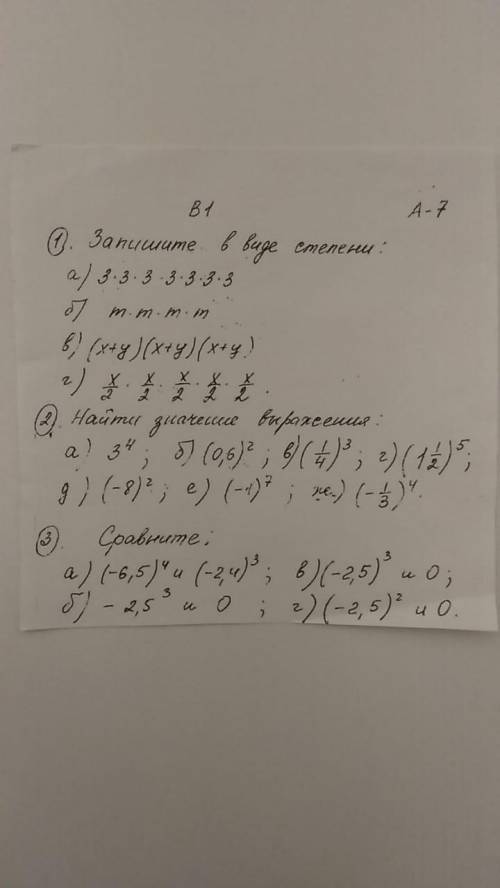 В1 А-7
1. Запишите в виде степени:
а) 3·3·3·3·3·3·3
б) m·m·m·m
в) (x+y)(x+y)(x+y)
г) x/2 · x/2 · x/2 · x/2 · x/2.
2. Найти значение выражения:
а) 3⁴; б) (0,6)²; в) (1/4)³; г) (1 1/2)⁵;
д) (-8)²; е) (-1)⁷; ж) (-1/3)⁴.
3. Сравните:
а) (-6,5)⁴ и (-2,4)³; в) (-2,5)³ и 0;
б) -2,5³ и 0; г) (-2,5)² и 0.